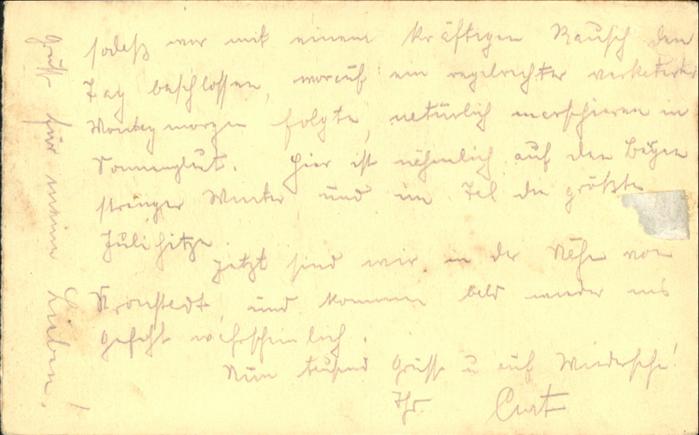 sodaß wir mit einem kräftigen Rausch den
Tag beschlossen, worauf ein regelrechter verkaterter
Montagmorgen folgte, natürlich marschieren in
Sonnenglut. Hier ist nähmlich auf den Bergen
strenger Winter und im Tal die größte
Julihitze.
Jetzt sind wir in der Nähe von
Kronstadt, und kommen bald wieder ins
Gefecht wahrscheinlich.
Nun tausend Grüsse u auf Wiedersehn!
Ihr Curt
Grüsse für meine Lieben!